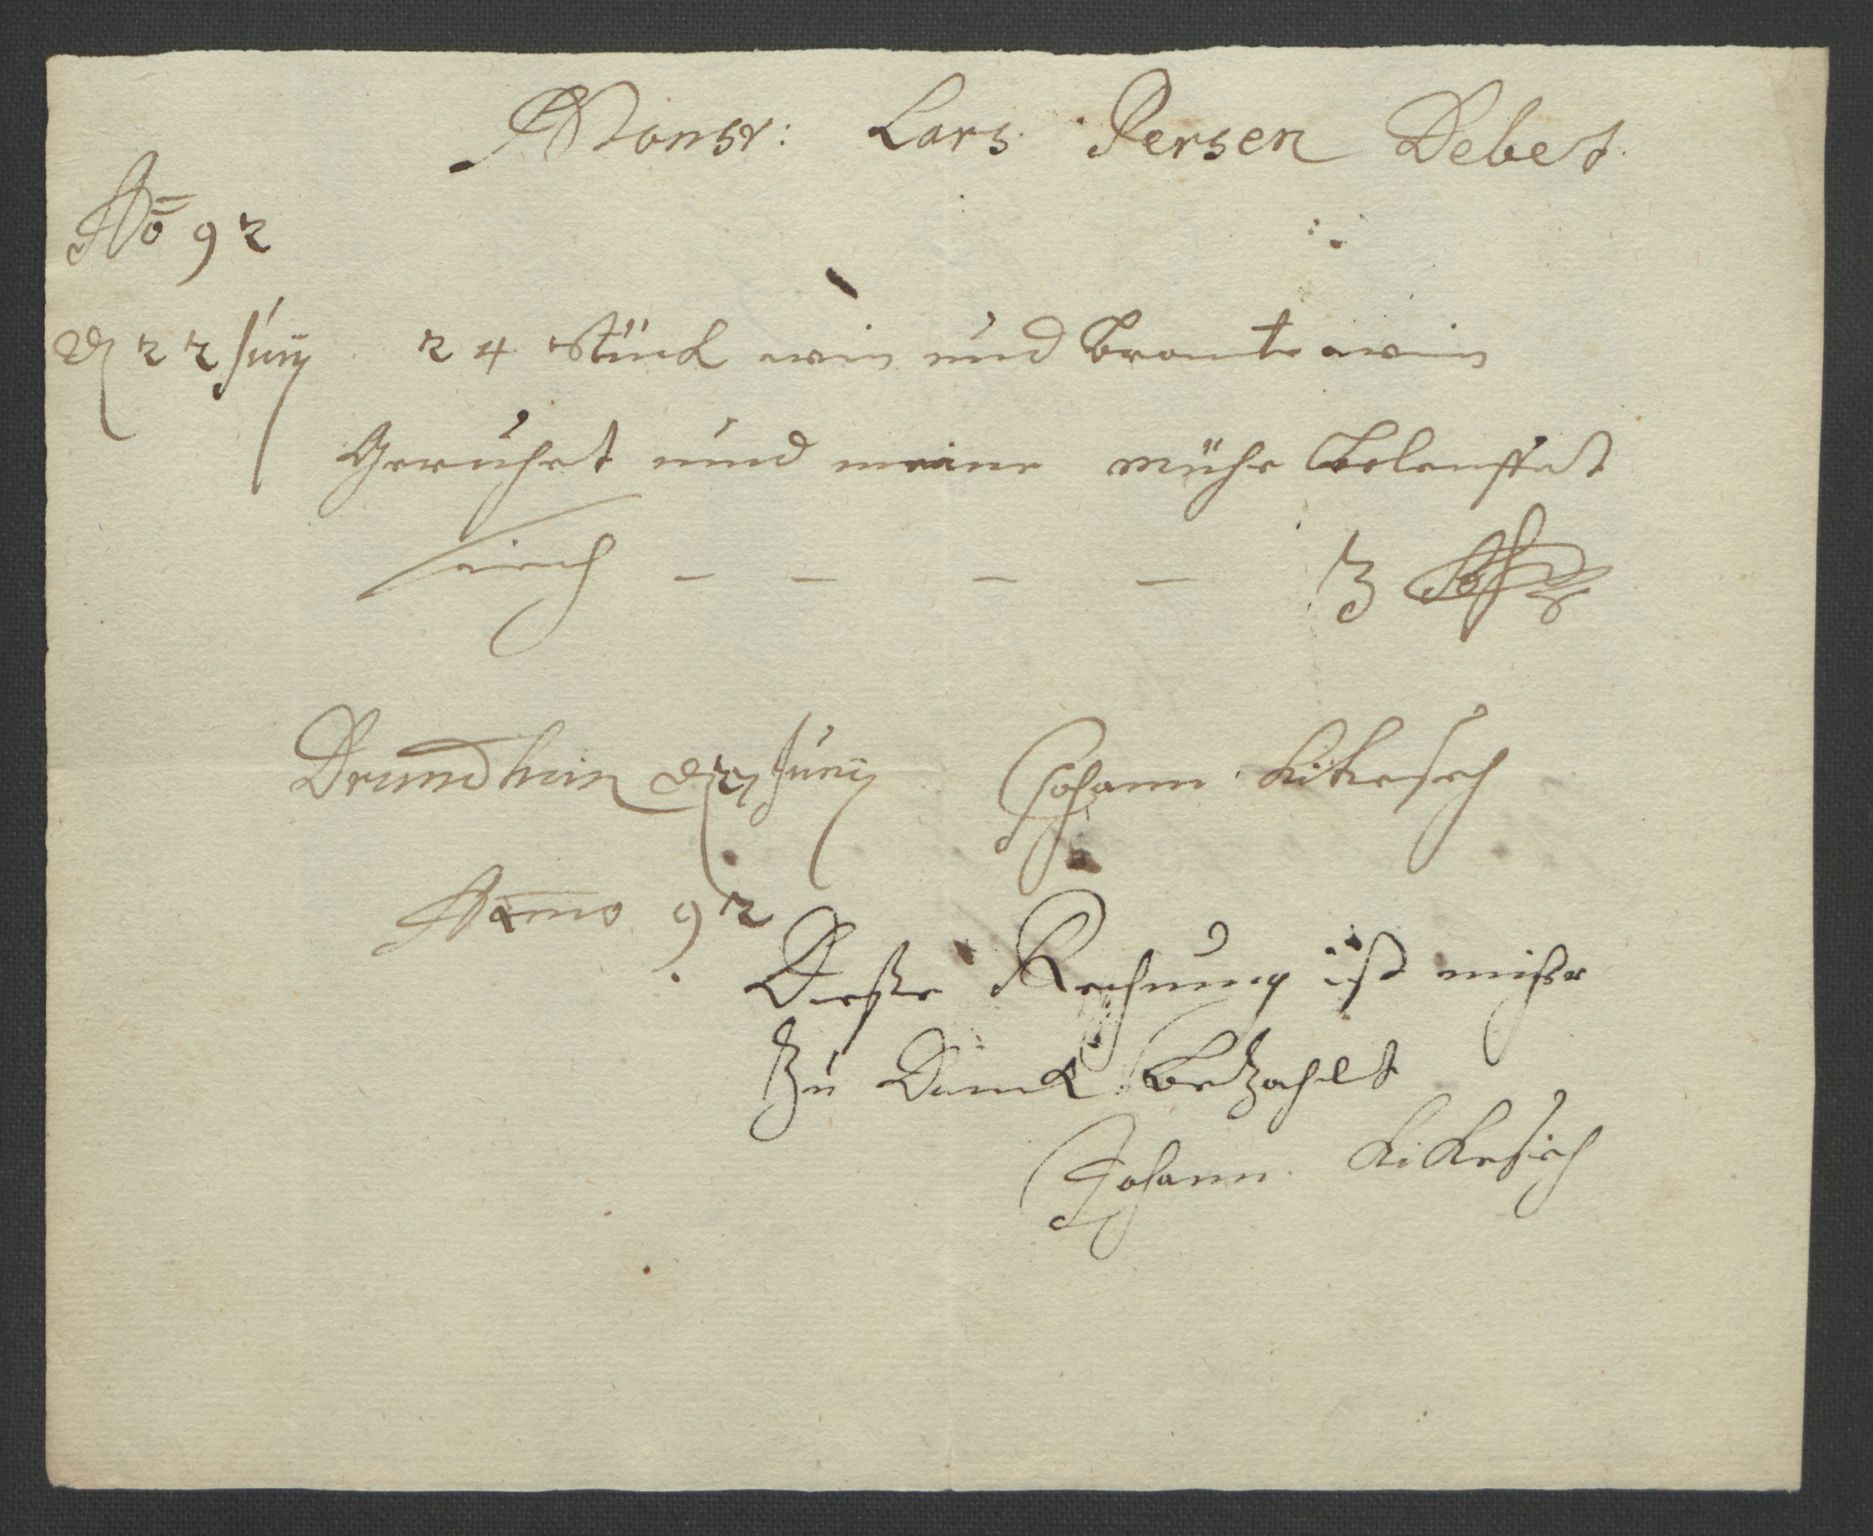 Monsr: Lars Persen Debet
Ao 92
d 22 Junij 24 Stück win und brante win
Geruhrt und meine mühe belauffet
sich – – – – 3
Drundhein d 27 Junij Johann Kikesich
Anno 92
Diesse Rechnung ist mihr
Zu Danck betzahlt
Johann Kikesich